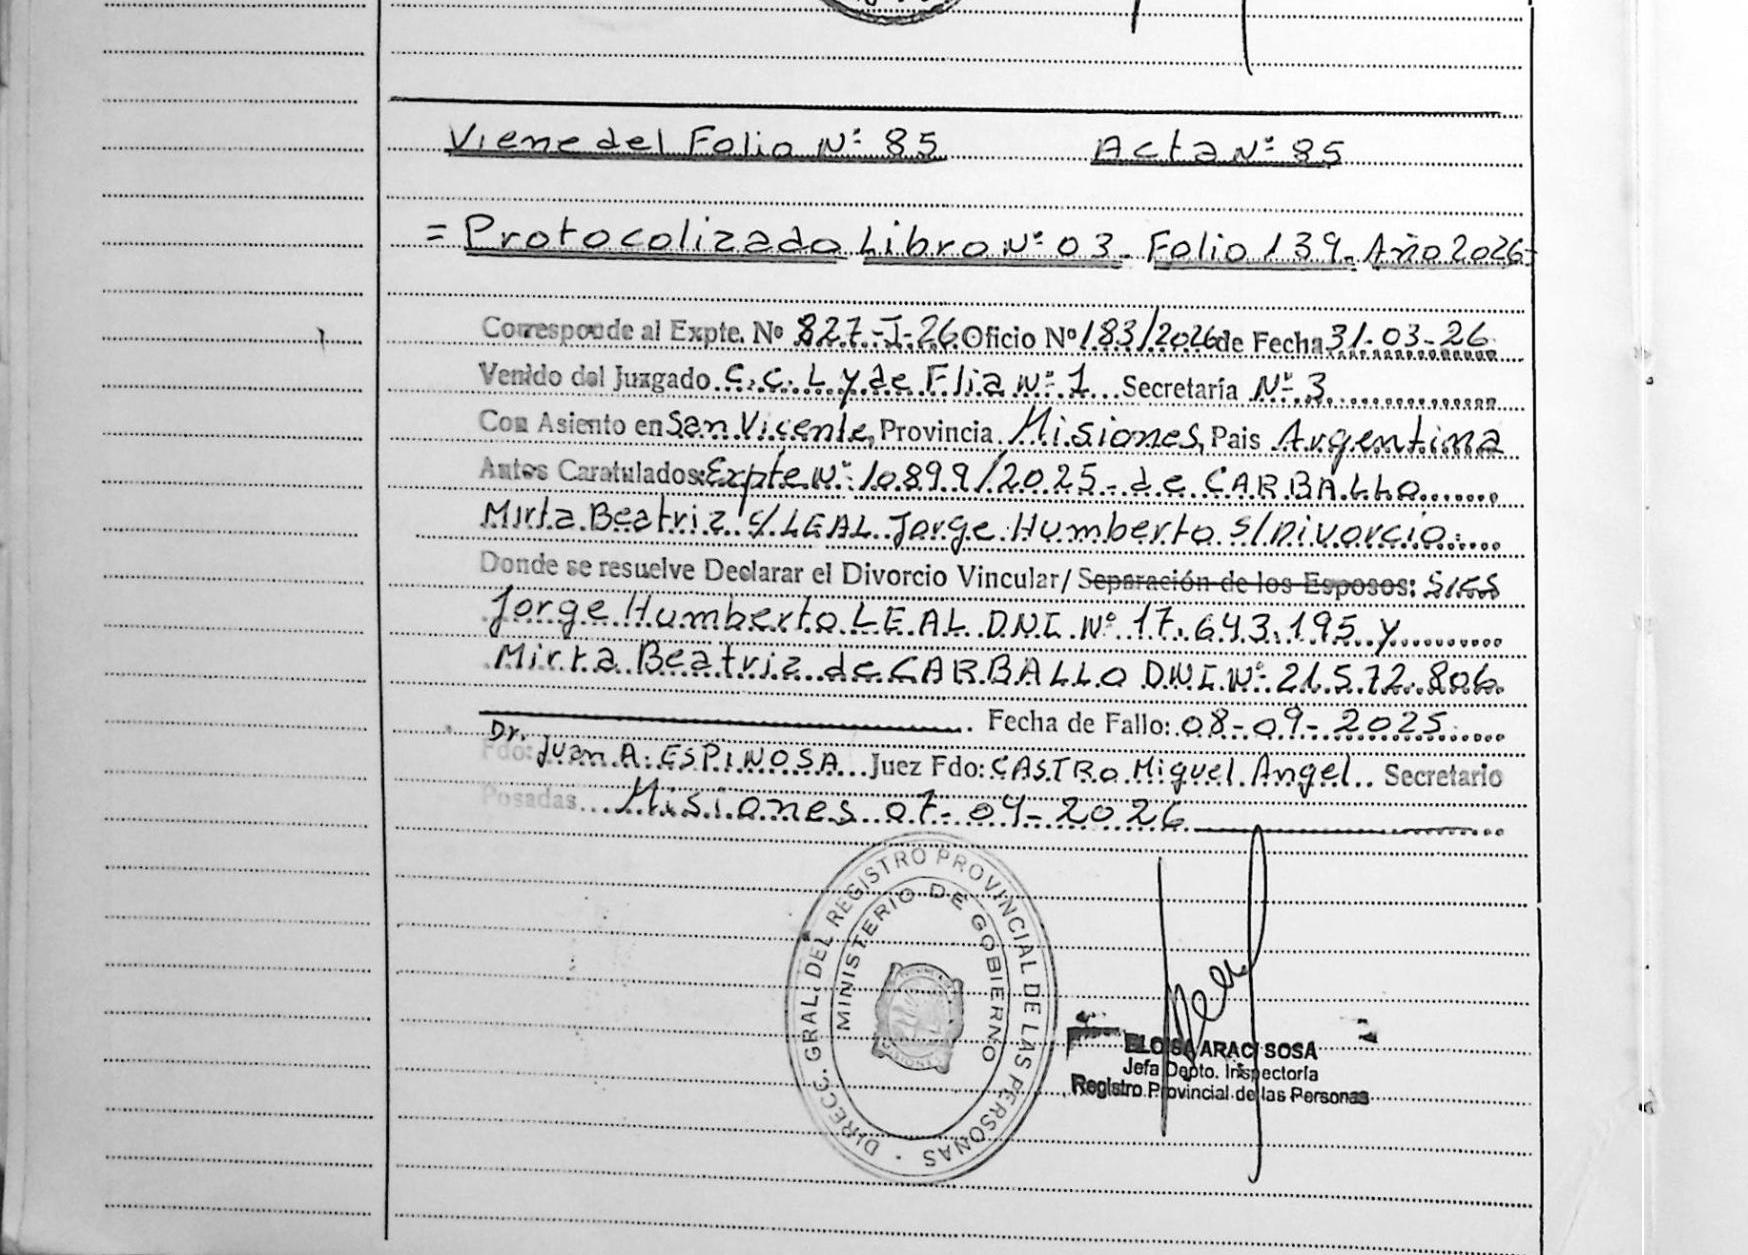 Viene del Folio Nº 85 Acta Nº 85
= Protocolizado Libro Nº 03 - Folio 139 - Año 2026-
Corresponde al Expte. Nº 827-I-26 Oficio Nº 183/2026 de Fecha 31-03-26
Venido del Juzgado C.C.L y de Flia Nº 1 Secretaría Nº 3
Con Asiento en San Vicente, Provincia Misiones, Pais Argentina
Autos Caratulados: Expte Nº 10899/2025 - de CARBALLO
Mirta Beatriz c/ LEAL Jorge Humberto s/ Divorcio
Donde se resuelve Declarar el Divorcio Vincular/ Separación de los Esposos:
Jorge Humberto LEAL DNI Nº 17.643.195 y
Mirta Beatriz de CARBALLO DNI Nº 21.572.806
Fecha de Fallo: 08-09-2025
Fdo: Dr. Juan A. ESPINOSA Juez Fdo: CASTRO Miguel Angel Secretario
Posadas Misiones 07-04-2026
DIRECC. GRAL. DEL REGISTRO PROVINCIAL DE LAS PERSONAS
MINISTERIO DE GOBIERNO
ELOISA ARACI SOSA
Jefa Depto. Inspectoría
Registro Provincial de las Personas